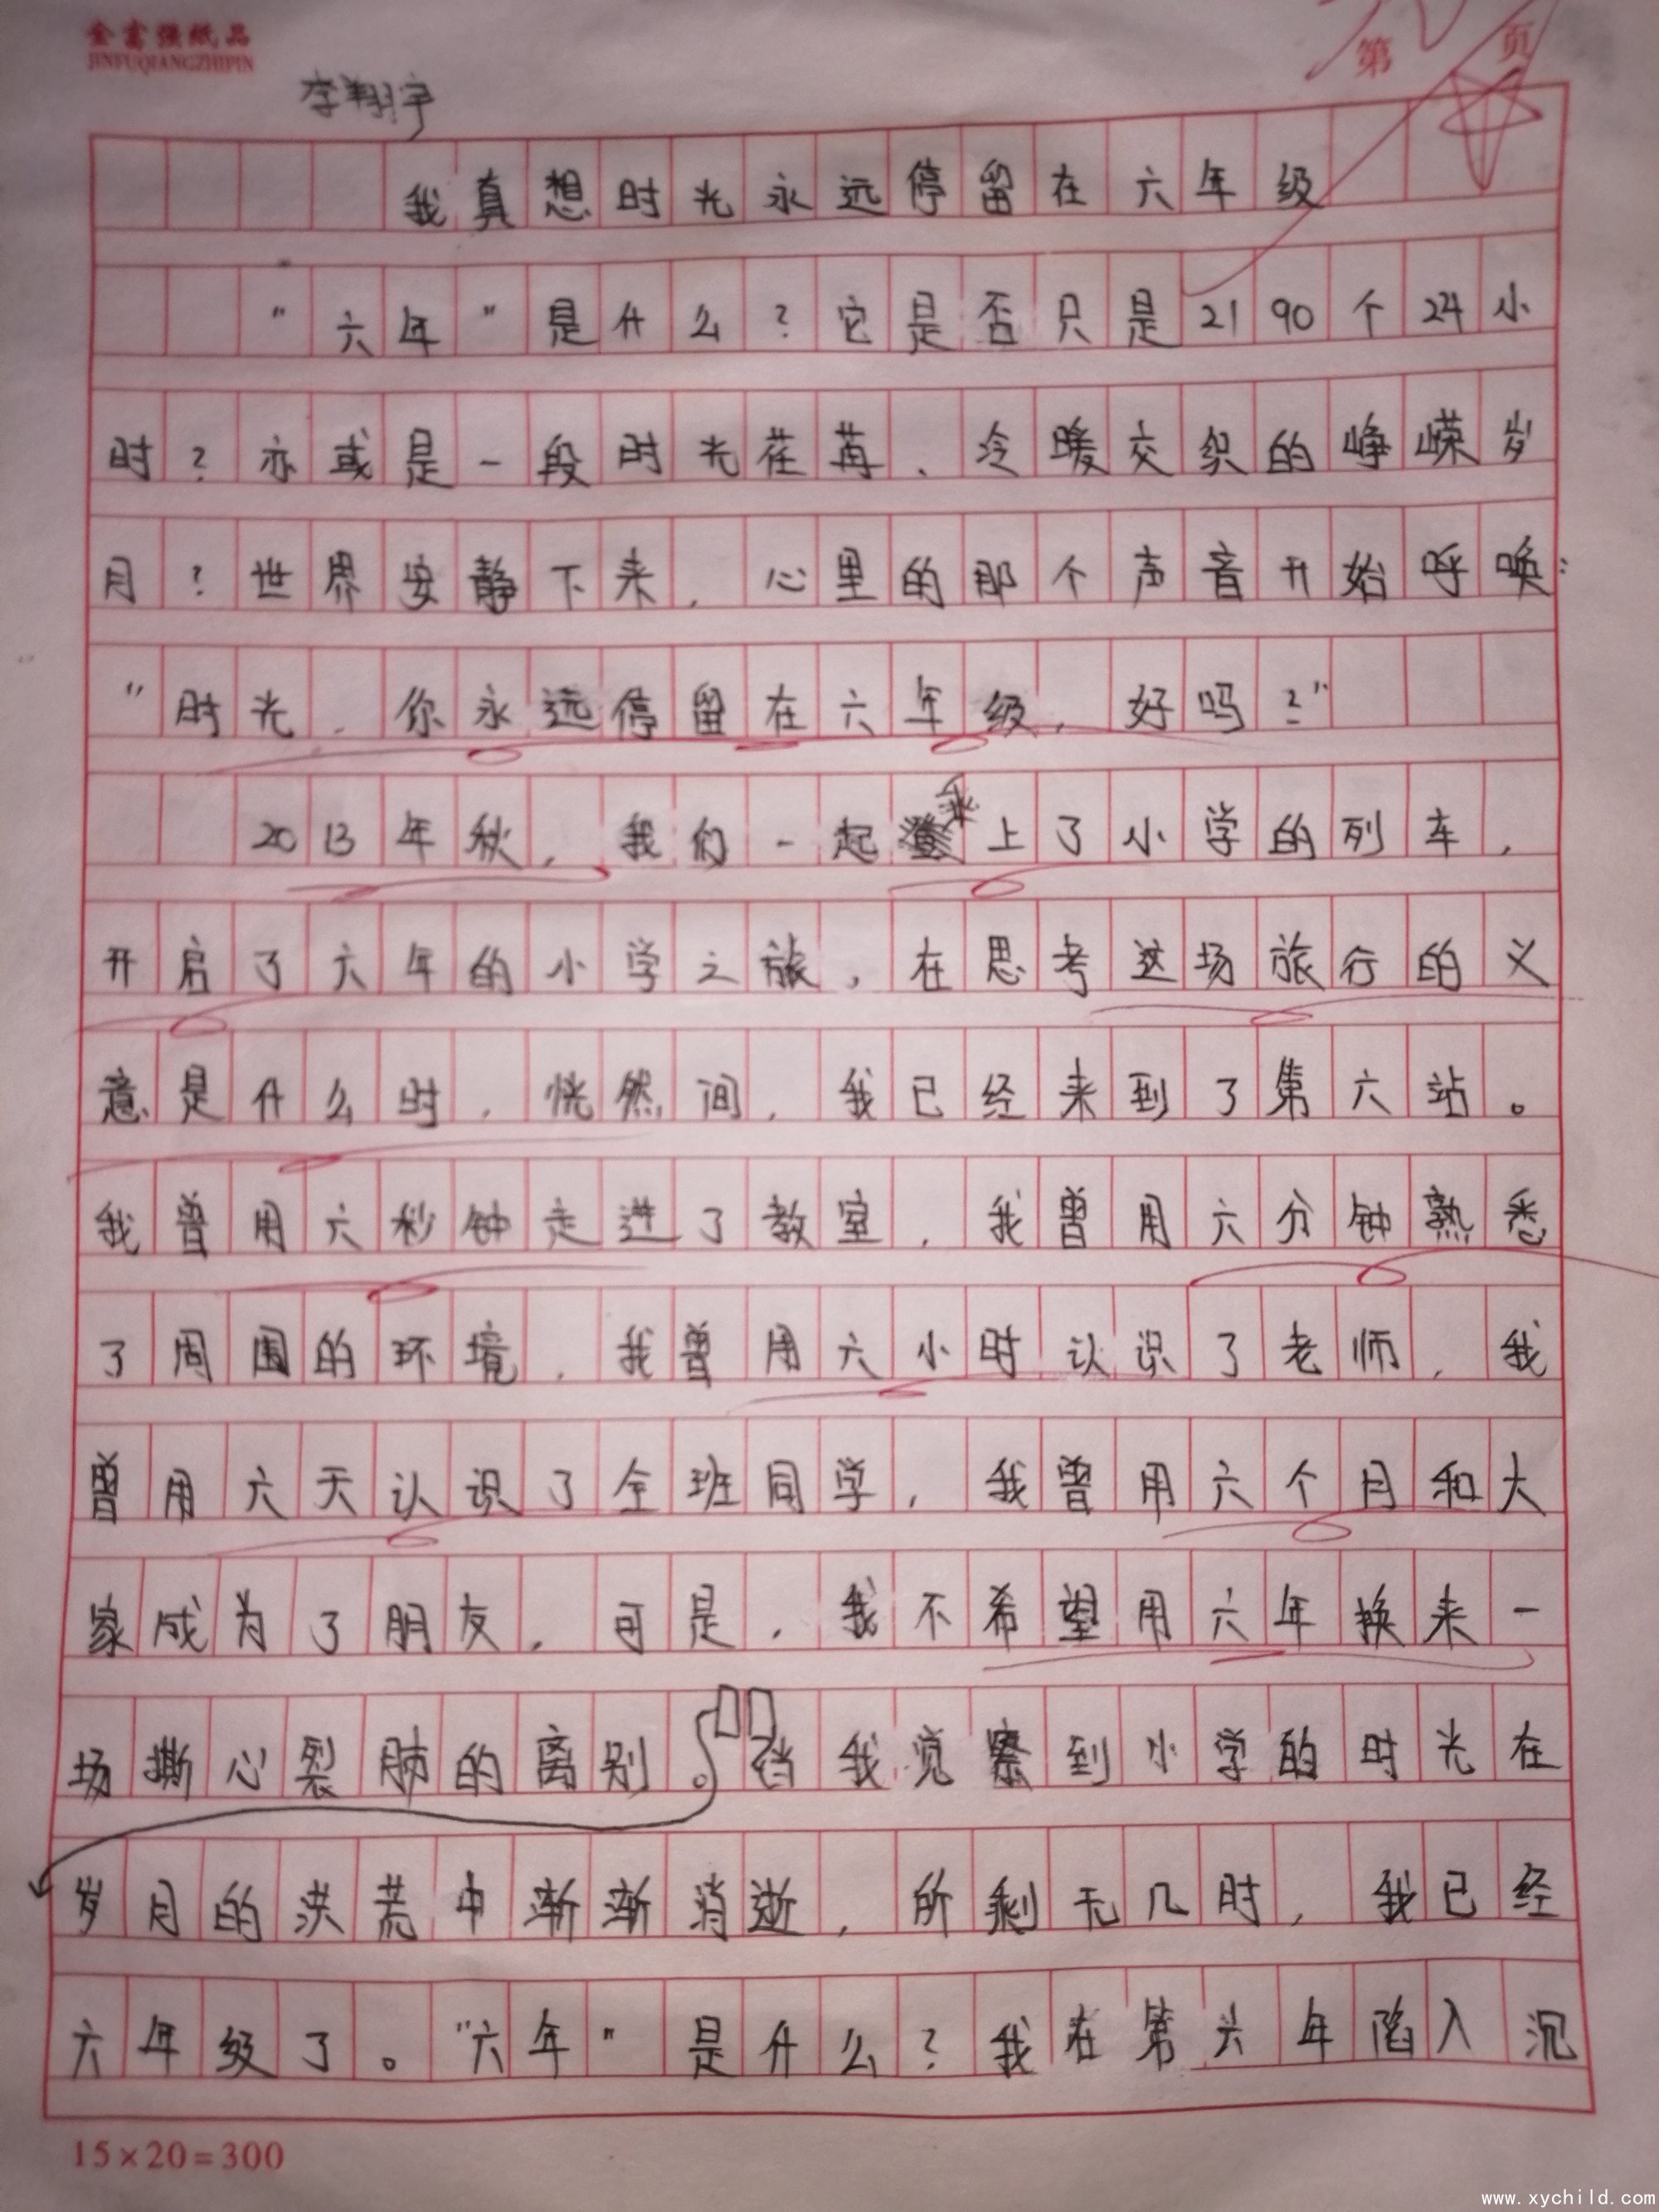 金富强纸品
JINFUQIANGZHIPIN
第 页
李翔宇
我真想时光永远停留在六年级
"六年"是什么?它是否只是2190个24小
时?亦或是一段时光荏苒、冷暖交织的峥嵘岁
月?世界安静下来,心里的那个声音开始呼唤:
"时光,你永远停留在六年级,好吗?"
2013年秋,我们一起乘上了小学的列车,
开启了六年的小学之旅,在思考这场旅行的义
意是什么时,恍然间,我已经来到了第六站。
我曾用六秒钟走进了教室,我曾用六分钟熟悉
了周围的环境,我曾用六小时认识了老师,我
曾用六天认识了全班同学,我曾用六个月和大
家成为了朋友,可是,我不希望用六年换来一
场撕心裂肺的离别。当我觉察到小学的时光在
岁月的洪荒中渐渐消逝,所剩无几时,我已经
六年级了。"六年"是什么?我在第六年陷入沉
15×20=300
www.xychild.com